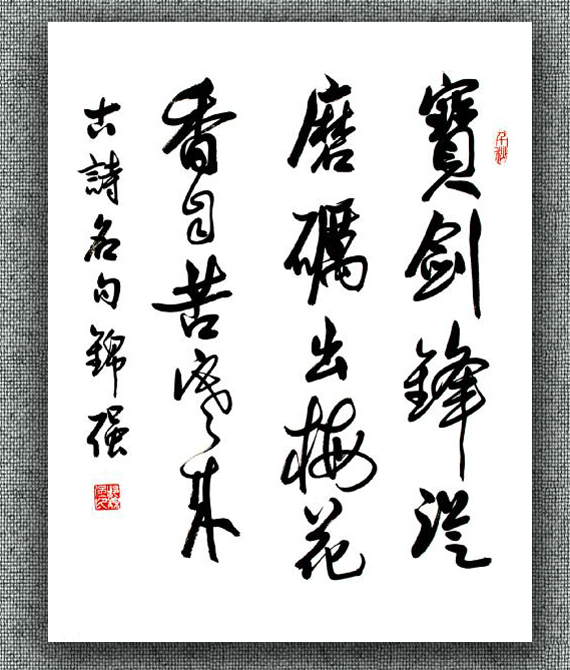 寶劍鋒從
磨礪出梅花
香自苦寒來
古詩名句錦強